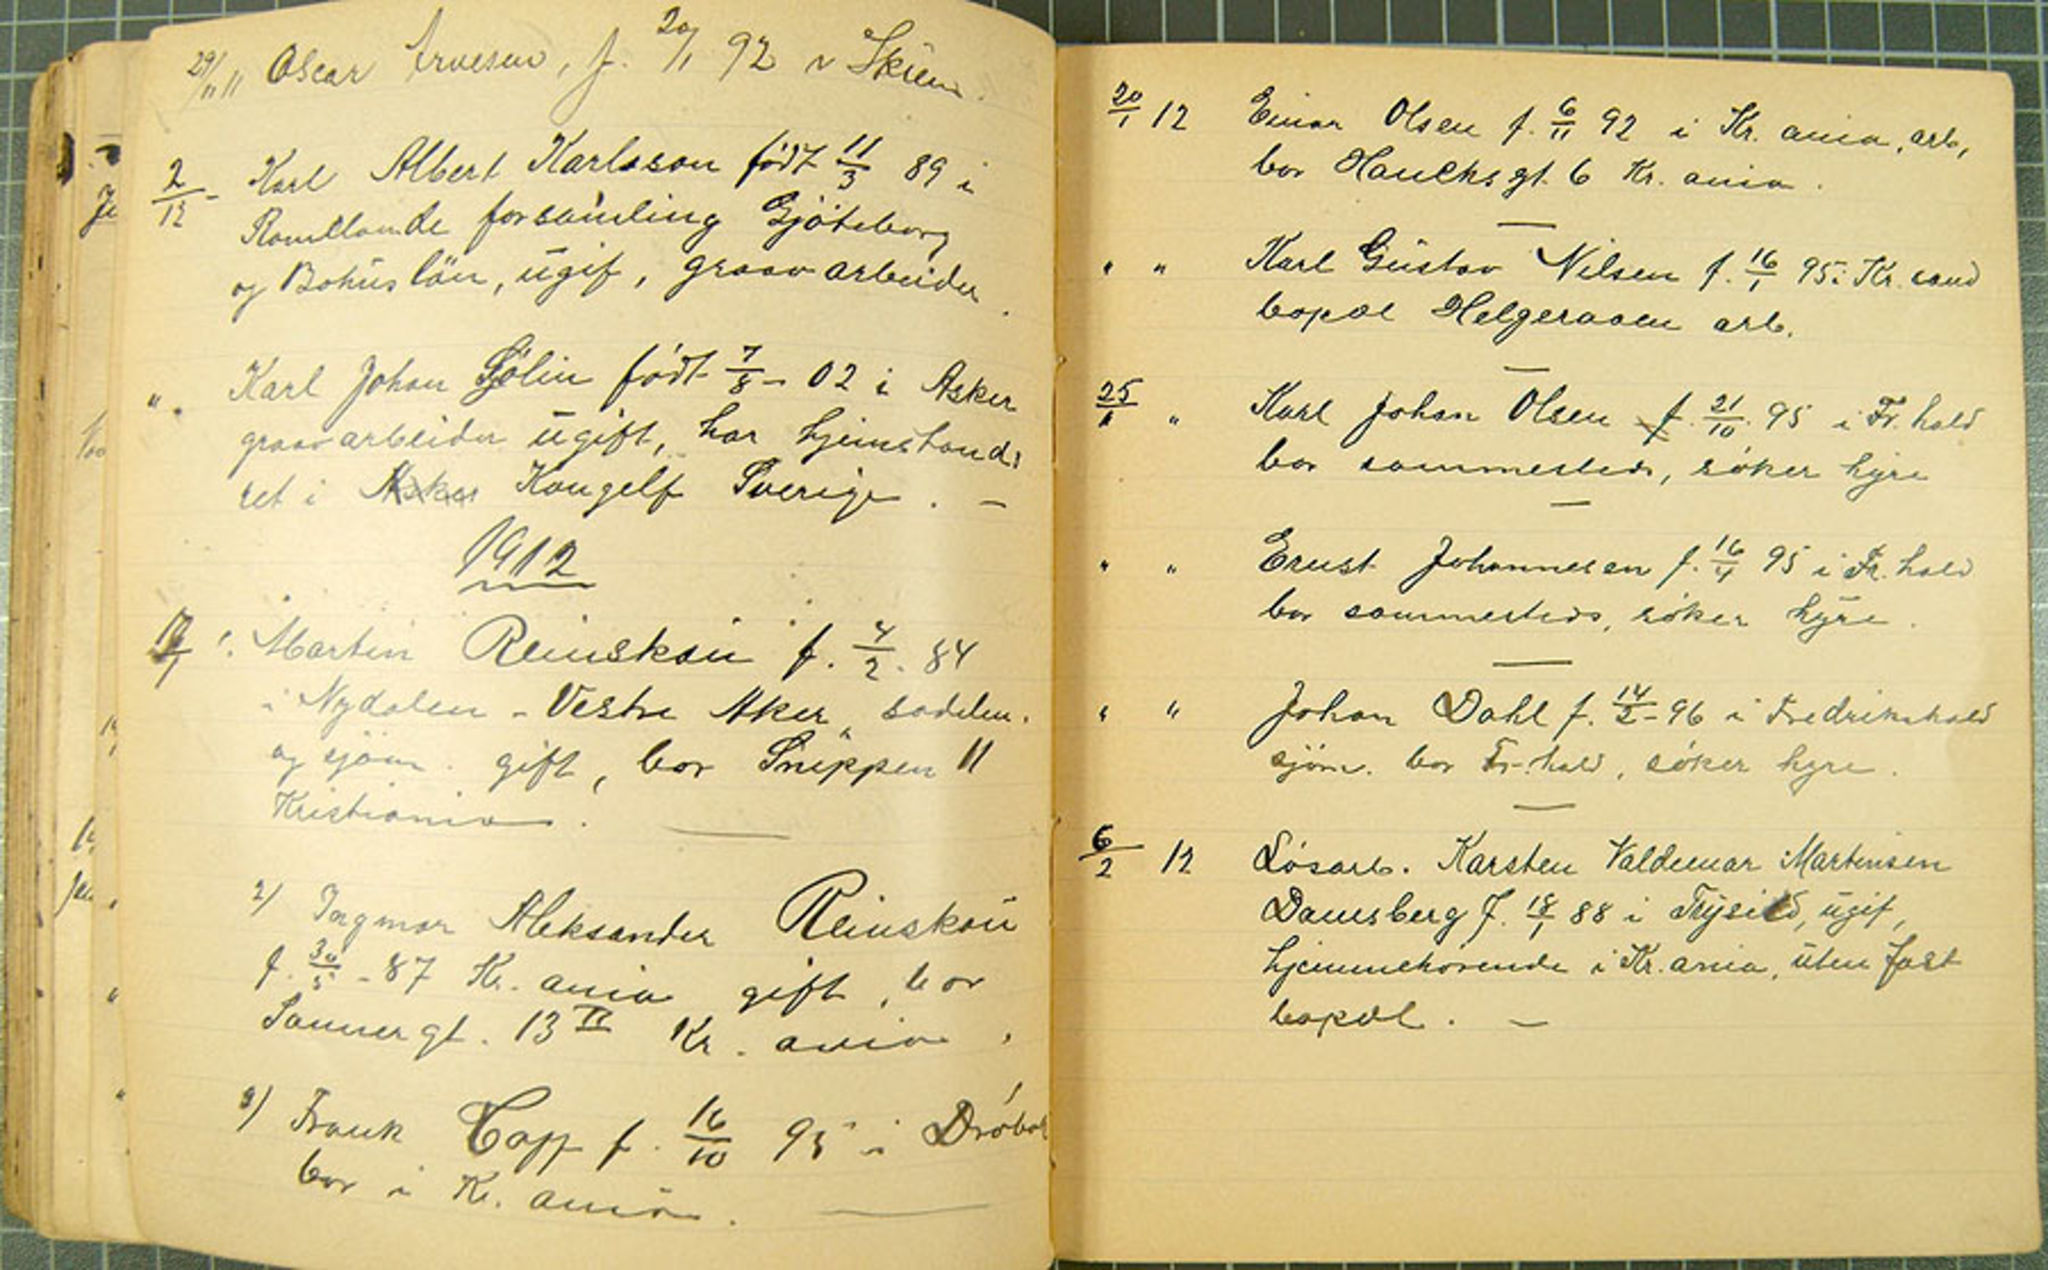 29/11 11 Oscar Arvesen, f. 20/1 92 v Skien.
2/12 - Karl Albert Karlsson født 11/3 89 i
Romelanda forsamling Gjøteborg
og Bohus län, ugif, graavarbeider.
" . Karl Johan Sjölin født 7/8 - 02 i Asker
graavarbeider ugift, har hjemstands
ret i Kongelf Sverige. —
1912
1. Martin Reinskou f. 4/2 - 84
i Nydalen - Vestre Aker, sadelm.
og sjöm. gift, bor Snippen 11
Kristiania.
2) Ingmar Aleksander Reinskou
f. 30/5 - 87 Kr. ania gift, bor
Sannergt. 13 II Kr. ania.
3) Frank Copp f. 16/10 95 i Dröbak
bor i Kr. ania.
20/1 12 Einar Olsen f. 6/11 92 i Kr. ania, arb,
bor Hauchsgt. 6 Kr. ania.
" " Karl Gustav Nilsen f. 16/1 95 i Kr. sand
bopæl Helgeraaen arb.
25/1 " Karl Johan Olsen f. 21/10 95 i Fr. hald
bor sammesteds, söker hyre
" " Ernst Johannesen f. 16/4 95 i Fr. hald
bor sammesteds, söker hyre.
" " Johan Dahl f. 14/2 - 96 i Fredrikshald
sjöm. bor Fr. hald, söker hyre.
6/2 12 Løsarb. Karsten Valdemar Martinsen
Damsberg f. 18/1 88 i Trysild, ugif,
hjemmehörende i Kr. ania, uten fast
bopæl. —